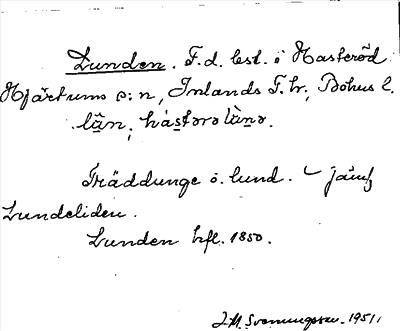 Lunden. F.d. best. i Hasteröd
Hjärtums s:n, Inlands T. hr; Bohus l.
län;
Träddunge o. lund. – jämf
Lundeliden.
Lunden bfl. 1850.
J.M. Svenungsson. 1951.